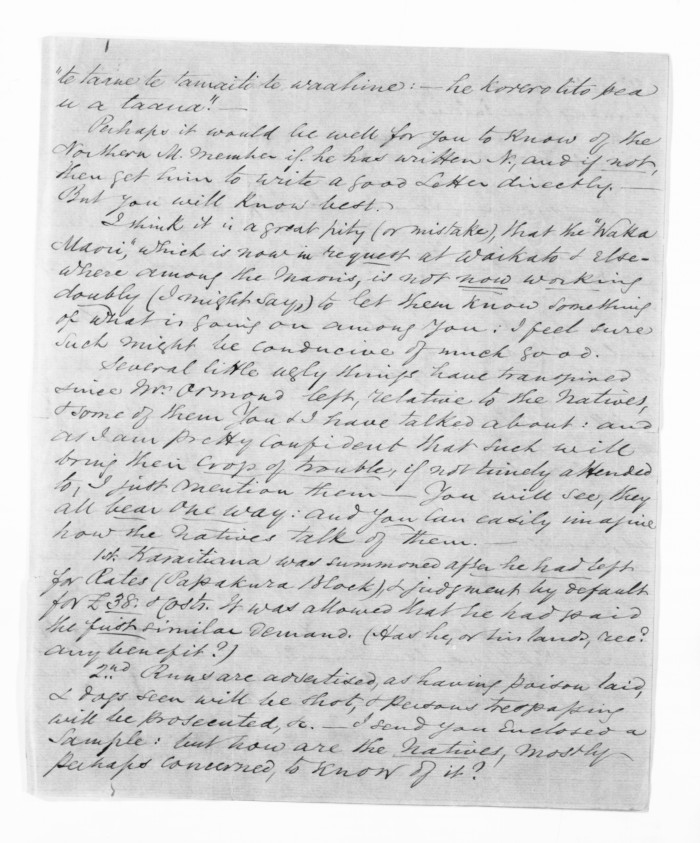 "te taane te tamaiti te waahine: — he korero tito pea
u a taana". —
Perhaps it would be well for you to know of the
Northern M. Member if he has written N., and if not,
then get him to write a good Letter directly. —
But you will know best.
I think it is a great pity (or mistake), that the "Waka
Maori," which is now in request at Waikato & else-
where among the Maoris, is not now working
doubly (I might say,) to let them know something
of what is going on among You: I feel sure
such might be conducive of much good.
Several little ugly things have transpired
since Mr. Ormond left, relative to the Natives,
& some of them You & I have talked about: and
as I am pretty confident that such will
bring their crop of trouble, if not timely attended
to, I just mention them — You will see, they
all bear one way: and you can easily imagine
how the Natives talk of them. —
1st. Karaitiana was summoned after he had left
for Rates (Papakura Block) & judgment by default
for £38. & costs. It was allowed that he had paid
the first similar demand. (Has he, or his lands, rec?
any benefit?)
2nd Runs are advertised, as having poison laid,
& dogs seen will be shot, & persons trespassing
will be prosecuted, &c. — I send you Enclosed a
Sample: but how are the Natives, mostly
perhaps concerned, to know of it?